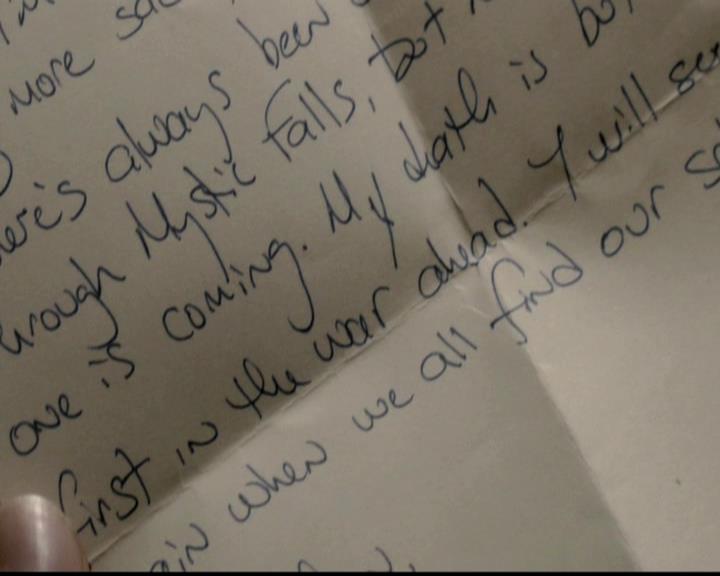 more
here's always been
hrough Mystic Falls, but
one is coming. My death is
first in the war ahead. I will
in when we all find our